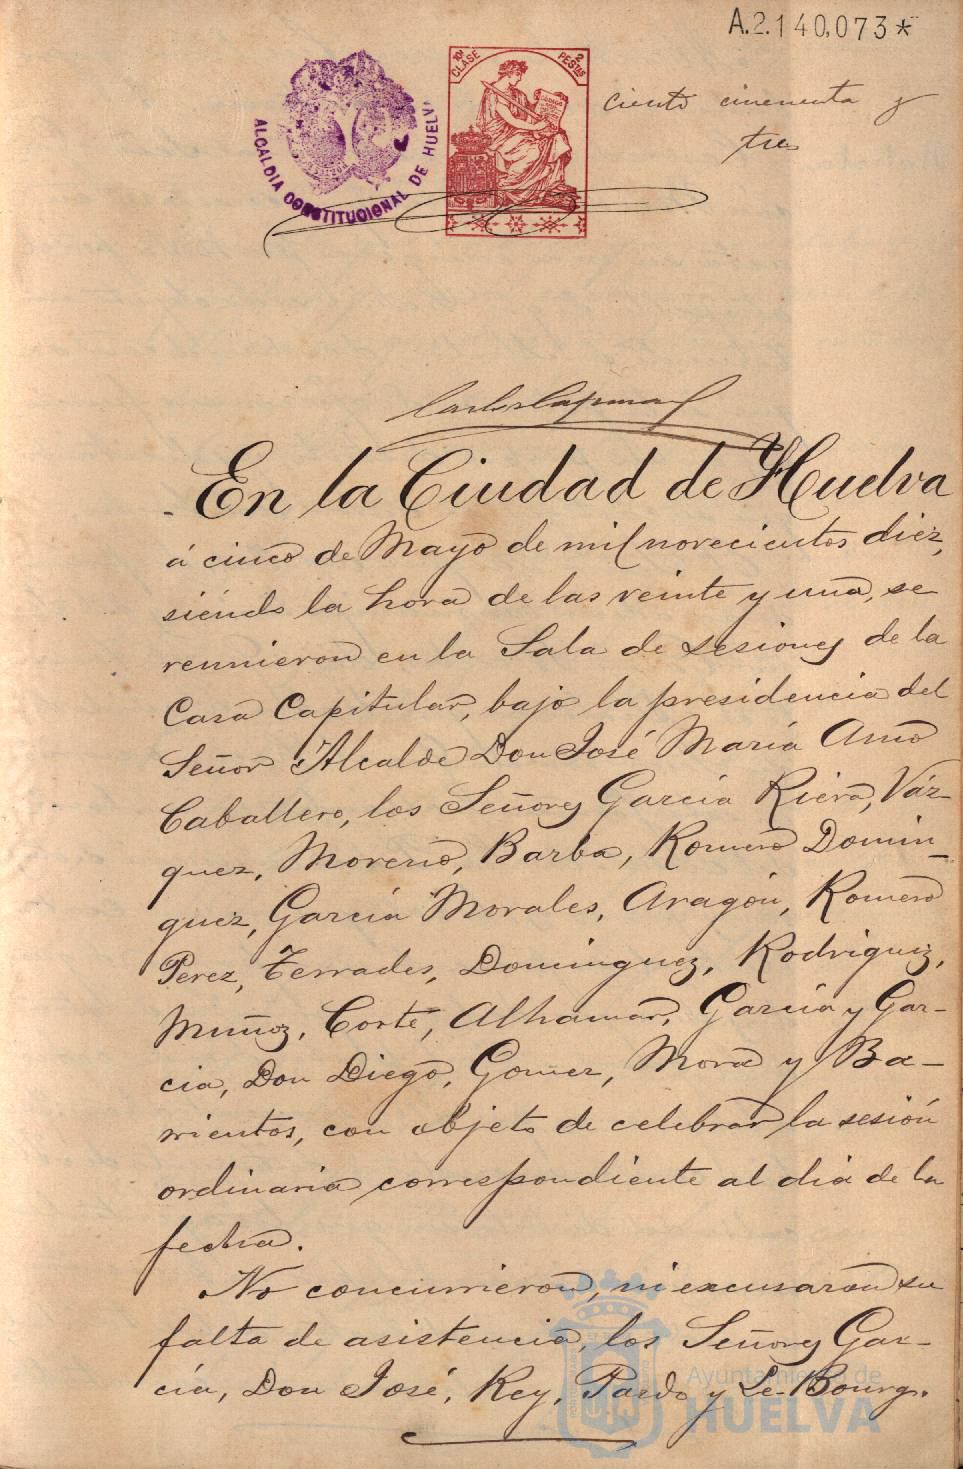 A.2.140,073*
10ª CLASE 2 PESTAS
ALCALDIA CONSTITUCIONAL DE HUELVA
ciento cincuenta y
tres
En la Ciudad de Huelva
á cinco de Mayo de mil novecientos diez,
siendo la hora de las veinte y una, se
reunieron en la Sala de sesiones de la
Casa Capitular, bajo la presidencia del
Señor Alcalde Don José María Amo
Caballero, los Señores García Riera, Váz-
quez, Moreno, Barba, Romero Domin-
guez, García Morales, Aragón, Romero
Perez, Terrades, Dominguez, Rodriguez,
Muñoz, Corte, Alhamar, García y Gar-
cia, Don Diego, Gomez, Mora y Ba-
rrientos, con objeto de celebrar la sesión
ordinaria correspondiente al dia de la
fecha.
No concurrieron, ni excusaron su
falta de asistencia, los Señores Gar-
cía, Don José, Rey, Pardo y Le-Bourg.
Ayuntamiento de
HUELVA